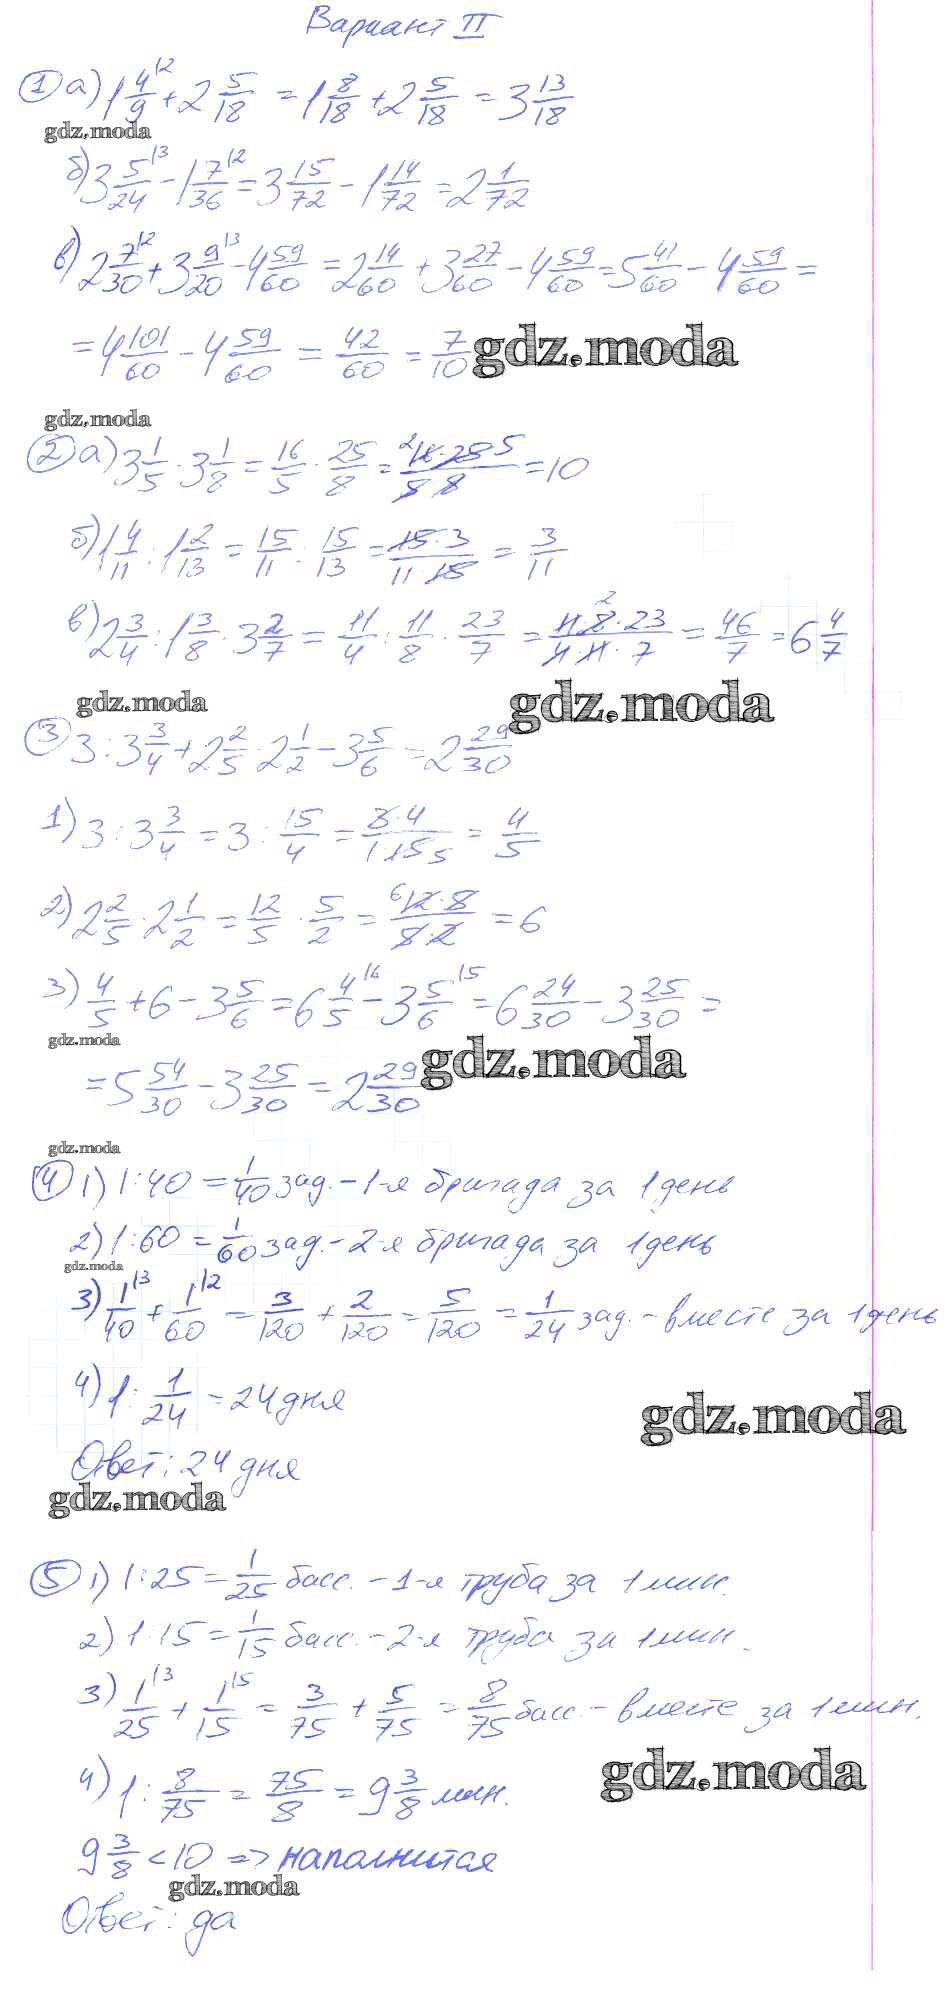 Вариант II
① а) 1 4/9 |2 + 2 5/18 = 1 8/18 + 2 5/18 = 3 13/18
gdz.moda
б) 3 5/24 |3 - 1 7/36 |2 = 3 15/72 - 1 14/72 = 2 1/72
в) 2 7/30 |2 + 3 9/20 |3 - 4 59/60 = 2 14/60 + 3 27/60 - 4 59/60 = 5 41/60 - 4 59/60 =
= 4 101/60 - 4 59/60 = 42/60 = 7/10 gdz.moda
gdz.moda
② а) 3 1/5 · 3 1/8 = 16/5 · 25/8 = 2 16·25 5/5·8 = 10
б) 1 4/11 : 1 2/13 = 15/11 : 15/13 = 15·3/11·15 = 3/11
в) 2 3/4 : 1 3/8 · 3 2/7 = 11/4 : 11/8 · 23/7 = 11·8 2·23/4·11·7 = 46/7 = 6 4/7
gdz.moda gdz.moda
③ 3 : 3 3/4 + 2 2/5 · 2 1/2 - 3 5/6 = 2 29/30
1) 3 : 3 3/4 = 3 : 15/4 = 3·4/1·15 5 = 4/5
2) 2 2/5 · 2 1/2 = 12/5 · 5/2 = 6 12·5/5·2 = 6
3) 4/5 + 6 - 3 5/6 = 6 4/5 |6 - 3 5/6 |5 = 6 24/30 - 3 25/30 =
gdz.moda gdz.moda
= 5 54/30 - 3 25/30 = 2 29/30
gdz.moda
④ 1) 1:40 = 1/40 зад. - 1-я бригада за 1 день
2) 1:60 = 1/60 зад. - 2-я бригада за 1 день
gdz.moda
3) 1/40 |3 + 1/60 |2 = 3/120 + 2/120 = 5/120 = 1/24 зад. - вместе за 1 день
4) 1 : 1/24 = 24 дня
gdz.moda
Ответ: 24 дня
gdz.moda
⑤ 1) 1:25 = 1/25 басс. - 1-я труба за 1 мин.
2) 1:15 = 1/15 басс. - 2-я труба за 1 мин.
3) 1/25 |3 + 1/15 |5 = 3/75 + 5/75 = 8/75 басс. - вместе за 1 мин.
gdz.moda
4) 1 : 8/75 = 75/8 = 9 3/8 мин.
9 3/8 < 10 => наполнится
gdz.moda
Ответ: да